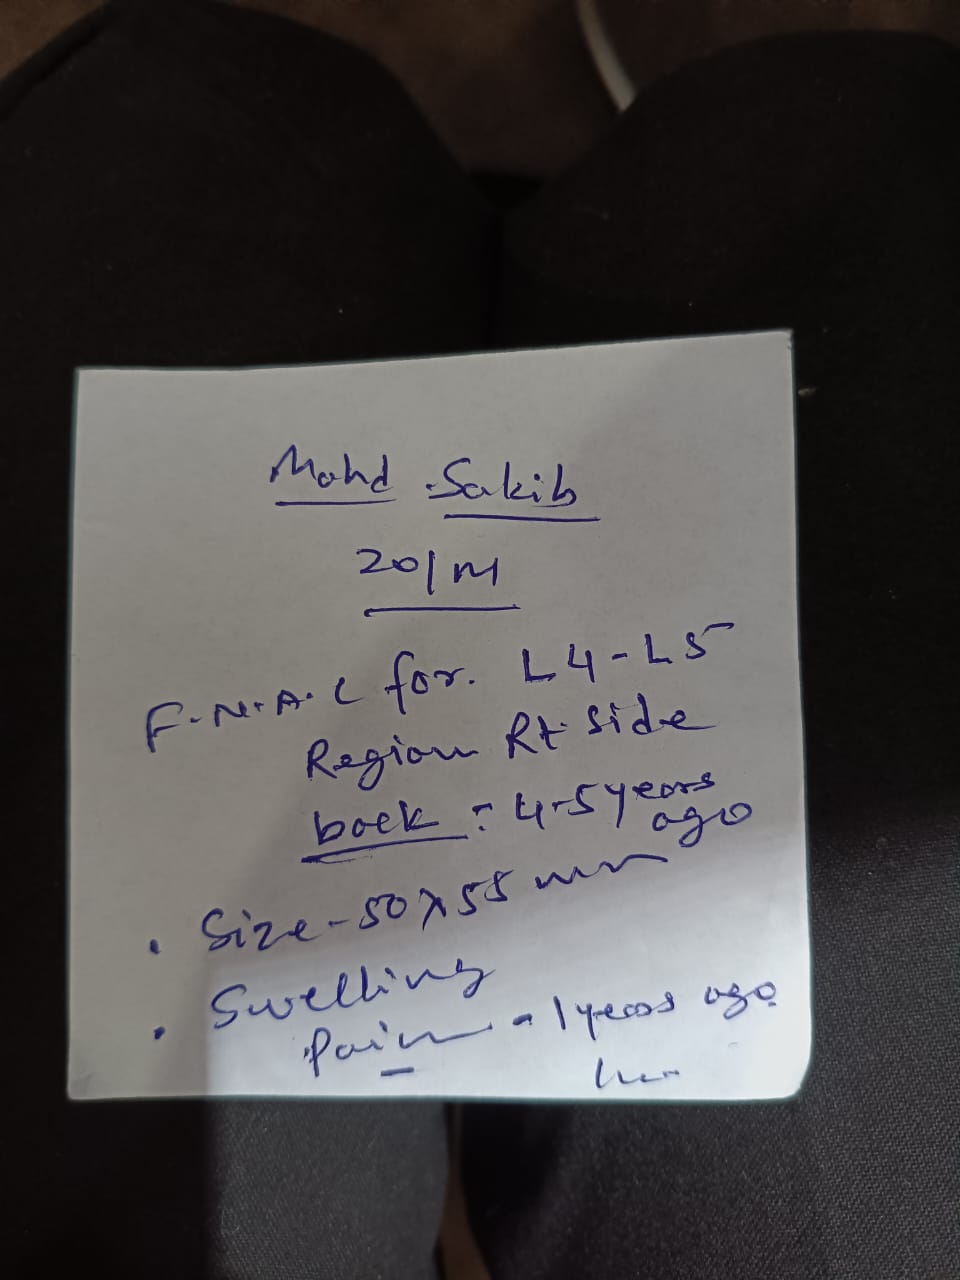 Mohd Sakib
20/M
F.N.A.C for. L4-L5
Region Rt Side
back : 4-5 years
ago
• Size - 50 x 55 mm
• Swelling
Pain - 1 years ago